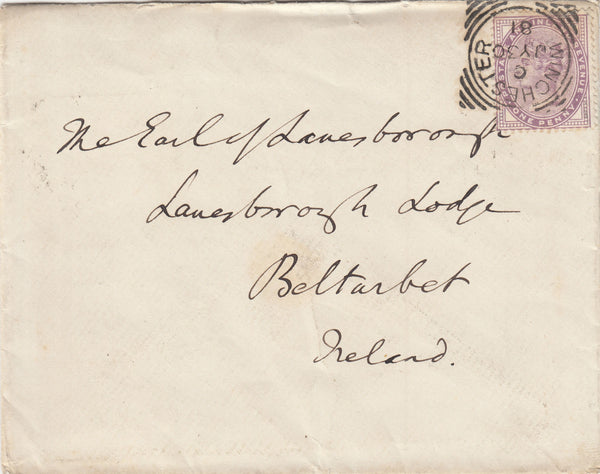 The Earl of Lanesborough
Lanesborough Lodge
Beltarbet
Ireland.
WINCHESTER
C
JY 30
87
POSTAGE AND INLAND REVENUE
ONE PENNY